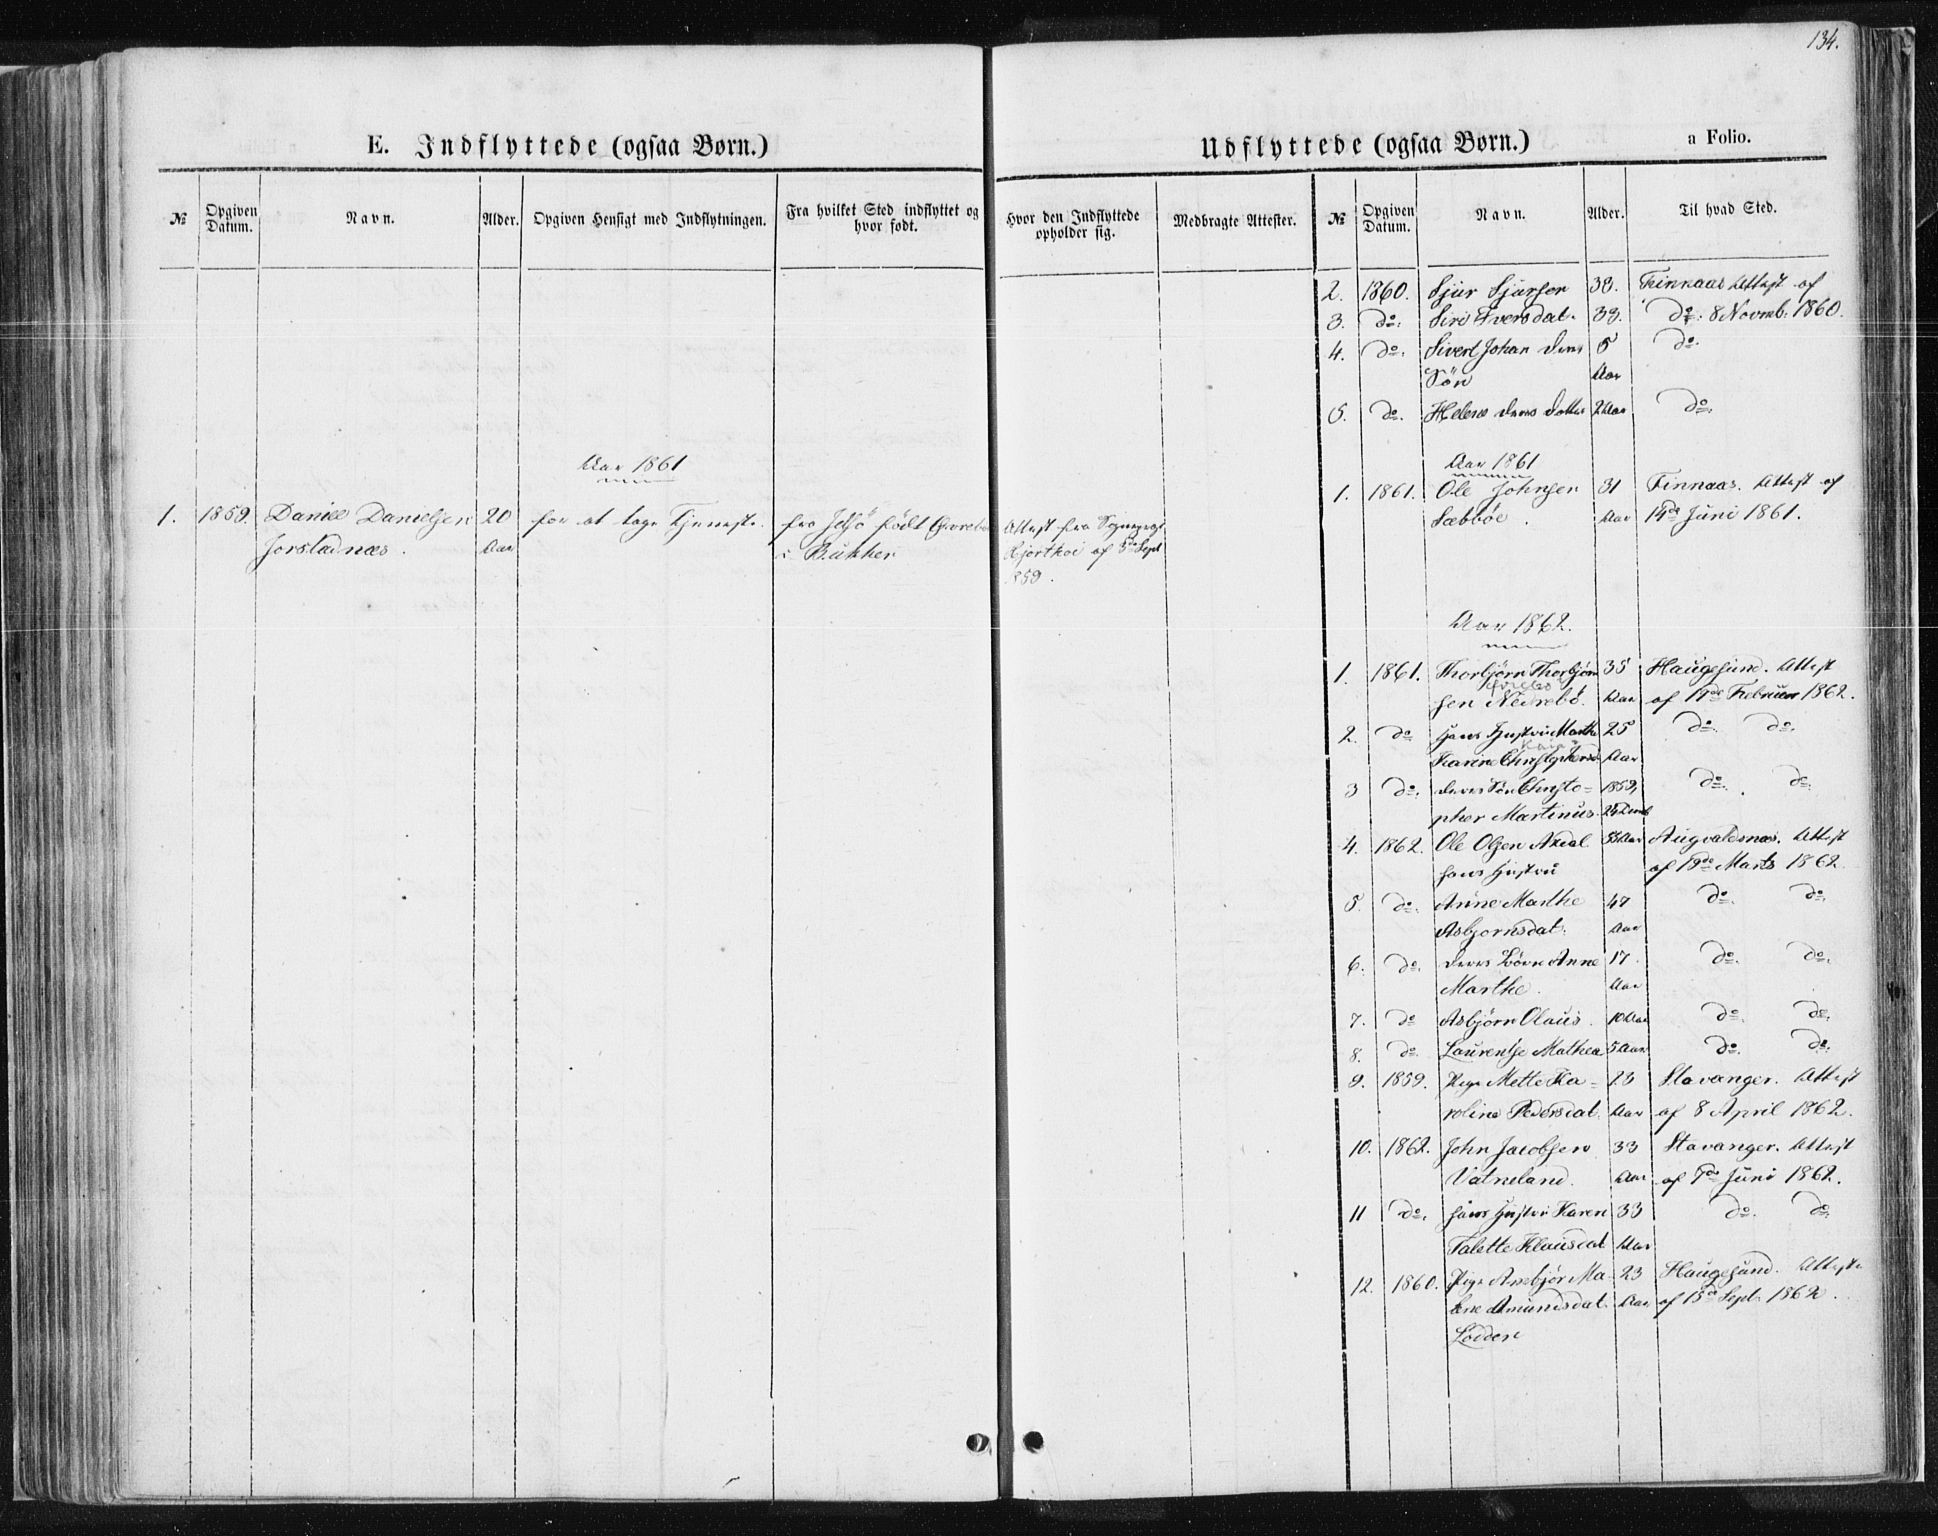 134.
E. Indflyttede (ogsaa Børn.)
Udflyttede (ogsaa Børn.)
a Folio.
№ Opgiven Datum. Navn. Alder. Opgiven Hensigt med Indflytningen. Fra hvilket Sted indflyttet og hvor født. Hvor den Indflyttede opholder sig. Medbragte Attester. № Opgiven Datum. Navn. Alder. Til hvad Sted.
2. 1860. Sjur Sjursen 38. Finnaas Attest af
3. do. Siri Iversdat. 39. do. 8 Novmb. 1860.
4. do. Sivert Johan deres 5 do.
Søn Aar
5. do. Helene deres Datter 2 Aar do.
Aar 1861
1. 1859. Daniel Danielsen 20 for at tage Tjeneste. fra Jelsø født
Jorstadnæs. Aar i Bukken
Attest fra Sognepræst
af 5te Sept
1859.
Aar 1861
1. 1861. Ole Johnsen 31 Finnaas. Attest af
Sæbbøe. Aar 14de Juni 1861.
Aar 1862.
1. 1861. Thorbjørn Thorbjørn 35 Haugesund. Attest
sen Nedrebø. Aar af 11te Februar 1862.
2. do. hans Hustru Marthe 25 do. do.
Karine Christophersd Aar
3 do. deres Søn Christo= 1859, do. do.
pher Martinus.
4. 1862. Ole Olsen Axdal Aar Augvaldsnæs. Attest
hans Hustru af 19de Marts 1862.
5. do. Anne Marthe 47 do. do.
Asbjørnsdat. Aar
6. do. deres Børn Anne 17 do. do.
Marthe. Aar
7. do Asbjørn Olaus. 10 Aar do. do.
8. do. Laurentse Mathea 5 Aar do. do.
9. 1859. Pige Mette Ka= 23 Stavanger. Attest
roline Pedersdat. Aar af 8 April 1862.
10. 1862. John Jacobsen 33 Stavanger. Attest
Vatneland. Aar af 7de Juni 1862.
11 do. hans Hustru Karen 33 do. do.
Talette Klausdat Aar
12. 1860. Pige Ma- 23 Haugesund. Attest
lene Amundsdat. Aar af 15de Sept. 1862.
Lodden